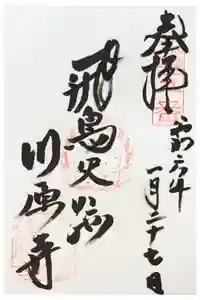 奉拝
令和六年
一月二十七日
飛鳥
川原寺